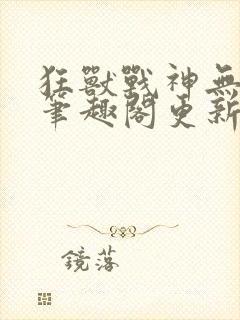 狂獸戰神無
筆趣閣更新
鏡落